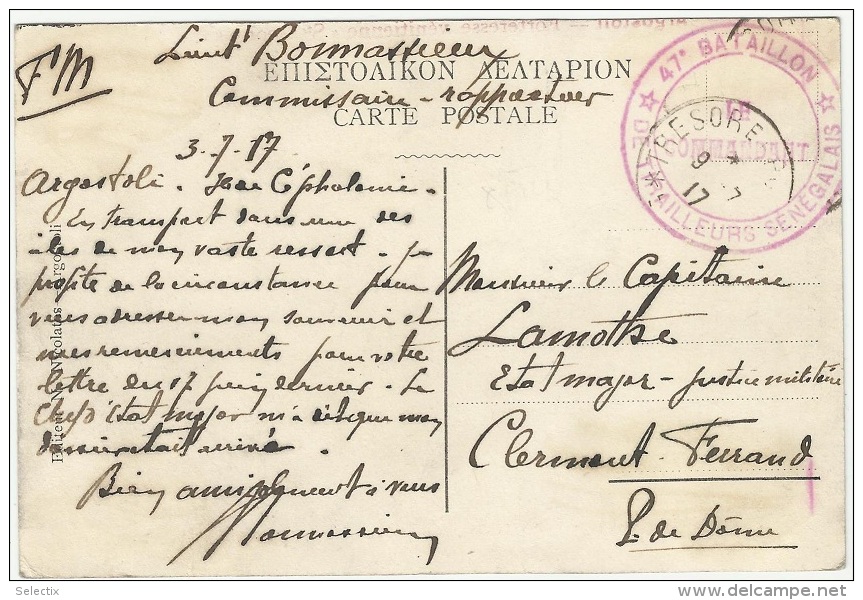 Argostoli - Forteresse vénitienne
FM
Lieut' Bonnassieux
ΕΠΙΣΤΟΛΙΚΟΝ ΔΕΛΤΑΡΙΟΝ
Commissaire-rapporteur
CARTE POSTALE
47e BATAILLON
DE TIRAILLEURS SENEGALAIS
LE
COMMANDANT
TRESOR E
9 7
17
3-7-17
Argostoli - Céphalonie -
En transport dans une des
îles de mon vaste ressort - je
profite de la circonstance pour
vous adresser mon souvenir et
mes remerciements pour votre
lettre du 17 juin dernier - Le
Chef d'Etat major m'a dit que mon
dossier était arrivé .
Bien amicalement à vous
Bonnassieux
Editeur Nicolatos - Argostoli
Monsieur le Capitaine
Lamothe
Etat major - justice militaire
Clermont-Ferrand
P. de Dôme
Selectix
delcampe.net